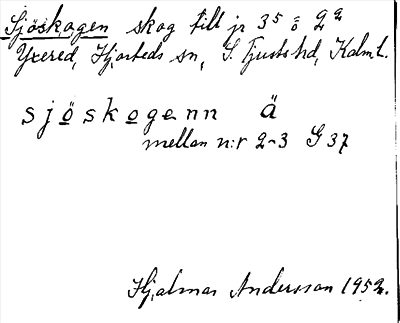 Sjöskogen skog till jr 3⁵ o 2ᵃ
Yxered, Hjorteds sn, S. Tjusts hd, Kalm l.
sjöskogenn Ä
mellan n:r 2-3 G 37
Hjalmar Andersson 1952.